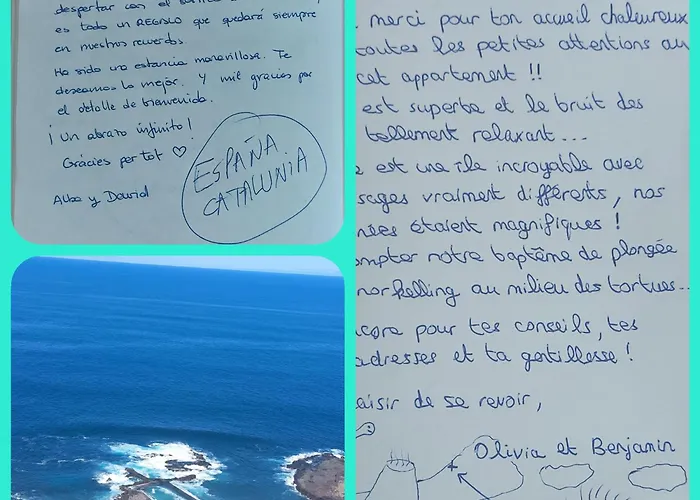 despertar con el
es todo un REGALO que quedará siempre
en nuestros recuerdos.
Ha sido una estancia maravillosa. Te
deseamos lo mejor. Y mil gracias por
el detalle de bienvenida.
¡Un abrazo infinito!
Gràcies per tot ♡
Alba y David
ESPAÑA
CATALUNIA
merci pour ton accueil chaleureux
toutes les petites attentions au
cet appartement !!
est superbe et le bruit des
tellement relaxant...
est une île incroyable avec
sages vraiment différents, nos
nées étaient magnifiques !
ompter notre baptême de plongée
norkelling au milieu des tortues...
core pour tes conseils, tes
adresses et ta gentillesse !
aisir de se revoir,
Olivia et Benjamin